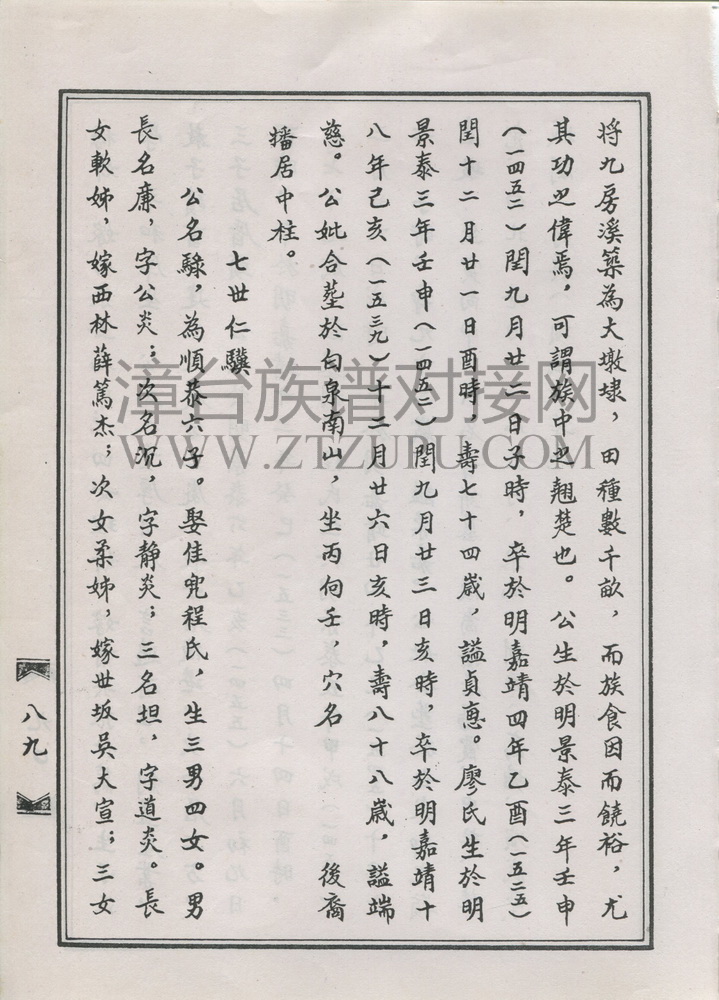 将九房溪築為大墩埭，田種數千畝，而族食因而饒裕，尤
其功之偉焉，可謂族中之翹楚也。公生於明景泰三年壬申
（一四五二）閏九月廿二日子時，卒於明嘉靖四年乙酉（一五二五）
閏十二月廿一日酉時，壽七十四歲，謚貞惠。廖氏生於明
景泰三年壬申（一四五二）閏九月廿三日亥時，卒於明嘉靖十
八年己亥（一五三九）十二月廿六日亥時，壽八十八歲，謚端
慈。公妣合塟於白泉南山，坐丙向壬，穴名 後裔
播居中柱。
七世仁驥
公名騄，為順恭六子。娶佳兜程氏，生三男四女。男
長名廉，字公炎；次名沉，字静炎；三名坦，字道炎。長
女軟姊，嫁西林薛篤杰；次女柔姊，嫁世坂吳大宣；三女
八九
漳台族谱对接网
WWW.ZTZUPU.COM